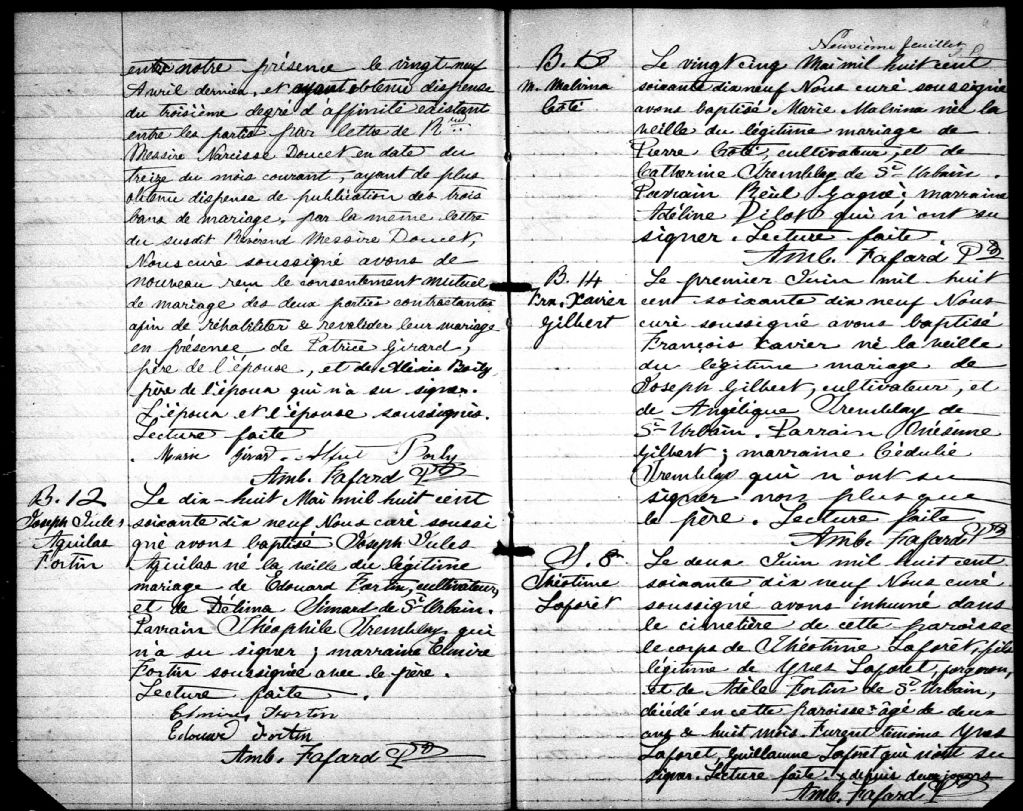 entre notre présence le vingt neuf
Avril dernier, et ayant obtenu dispense
du troisième degré d'affinité existant
entre les parties par lettre de R
Messire Narcisse Doucet en date du
treize du mois courant, ayant de plus
obtenu dispense de publication des trois
bans de mariage, par la même lettre
du susdit Révérend Messire Doucet,
Nous curé soussigné avons de
nouveau reçu le consentement mutuel
de mariage des deux parties contractantes
afin de réhabiliter & revalider leur mariage
en présence de Patrice Girard,
père de l'épouse, et de Alexis Boily
père de l'époux qui n'a su signer.
L'époux et l'épouse soussignés.
Lecture faite
Marie Girard.
Amb. Fafard Ptre
B. 12
Joseph Jules
Aquilas
Fortin
Le dix-huit Mai mil huit cent
soixante dix neuf Nous curé soussi
gné avons baptisé Joseph Jules
Aquilas né la veille du légitime
mariage de Edouard Fortin, cultivateur,
et de Délima Simard de St Urbain.
Parrain Théophile Tremblay qui
n'a su signer; marraine Elmire
Fortin soussignée avec le père.
Lecture faite.
Elmire Fortin
Edouard Fortin
Amb. Fafard Ptre
Neuvième feuillet
B. 13
M. Malvina
Coté
Le vingt cinq Mai mil huit cent
soixante dix neuf Nous curé soussigné
avons baptisé Marie Malvina née la
veille du légitime mariage de
Pierre Coté, cultivateur, et de
Catherine Tremblay de St Urbain.
Parrain Gagné, marraine
Adéline Pilote qui n'ont su
signer. Lecture faite
Amb. Fafard Ptre
B. 14
Frs. Xavier
Gilbert
Le premier Juin mil huit
cent soixante dix neuf Nous
curé soussigné avons baptisé
François Xavier né la veille
du légitime mariage de
Joseph Gilbert, cultivateur, et
de Angélique Tremblay de
St Urbain. Parrain Onésime
Gilbert; marraine Cédulie
Tremblay qui n'ont su
signer non plus que
le père. Lecture faite
Amb. Fafard Ptre
S. 8
Théotime
Laforêt
Le deux Juin mil huit cent
soixante dix neuf Nous curé
soussigné avons inhumé dans
le cimetière de cette paroisse
le corps de Théotime Laforêt, fils
légitime de Yves Laforet, forgeron,
et de Adèle Fortin de St Urbain,
décédé en cette paroisse + âgé de deux
ans & huit mois. Furent témoins Yves
Laforet, Guillaume Laforet qui n'ont su
signer. Lecture faite. + depuis deux jours
Amb. Fafard Ptre